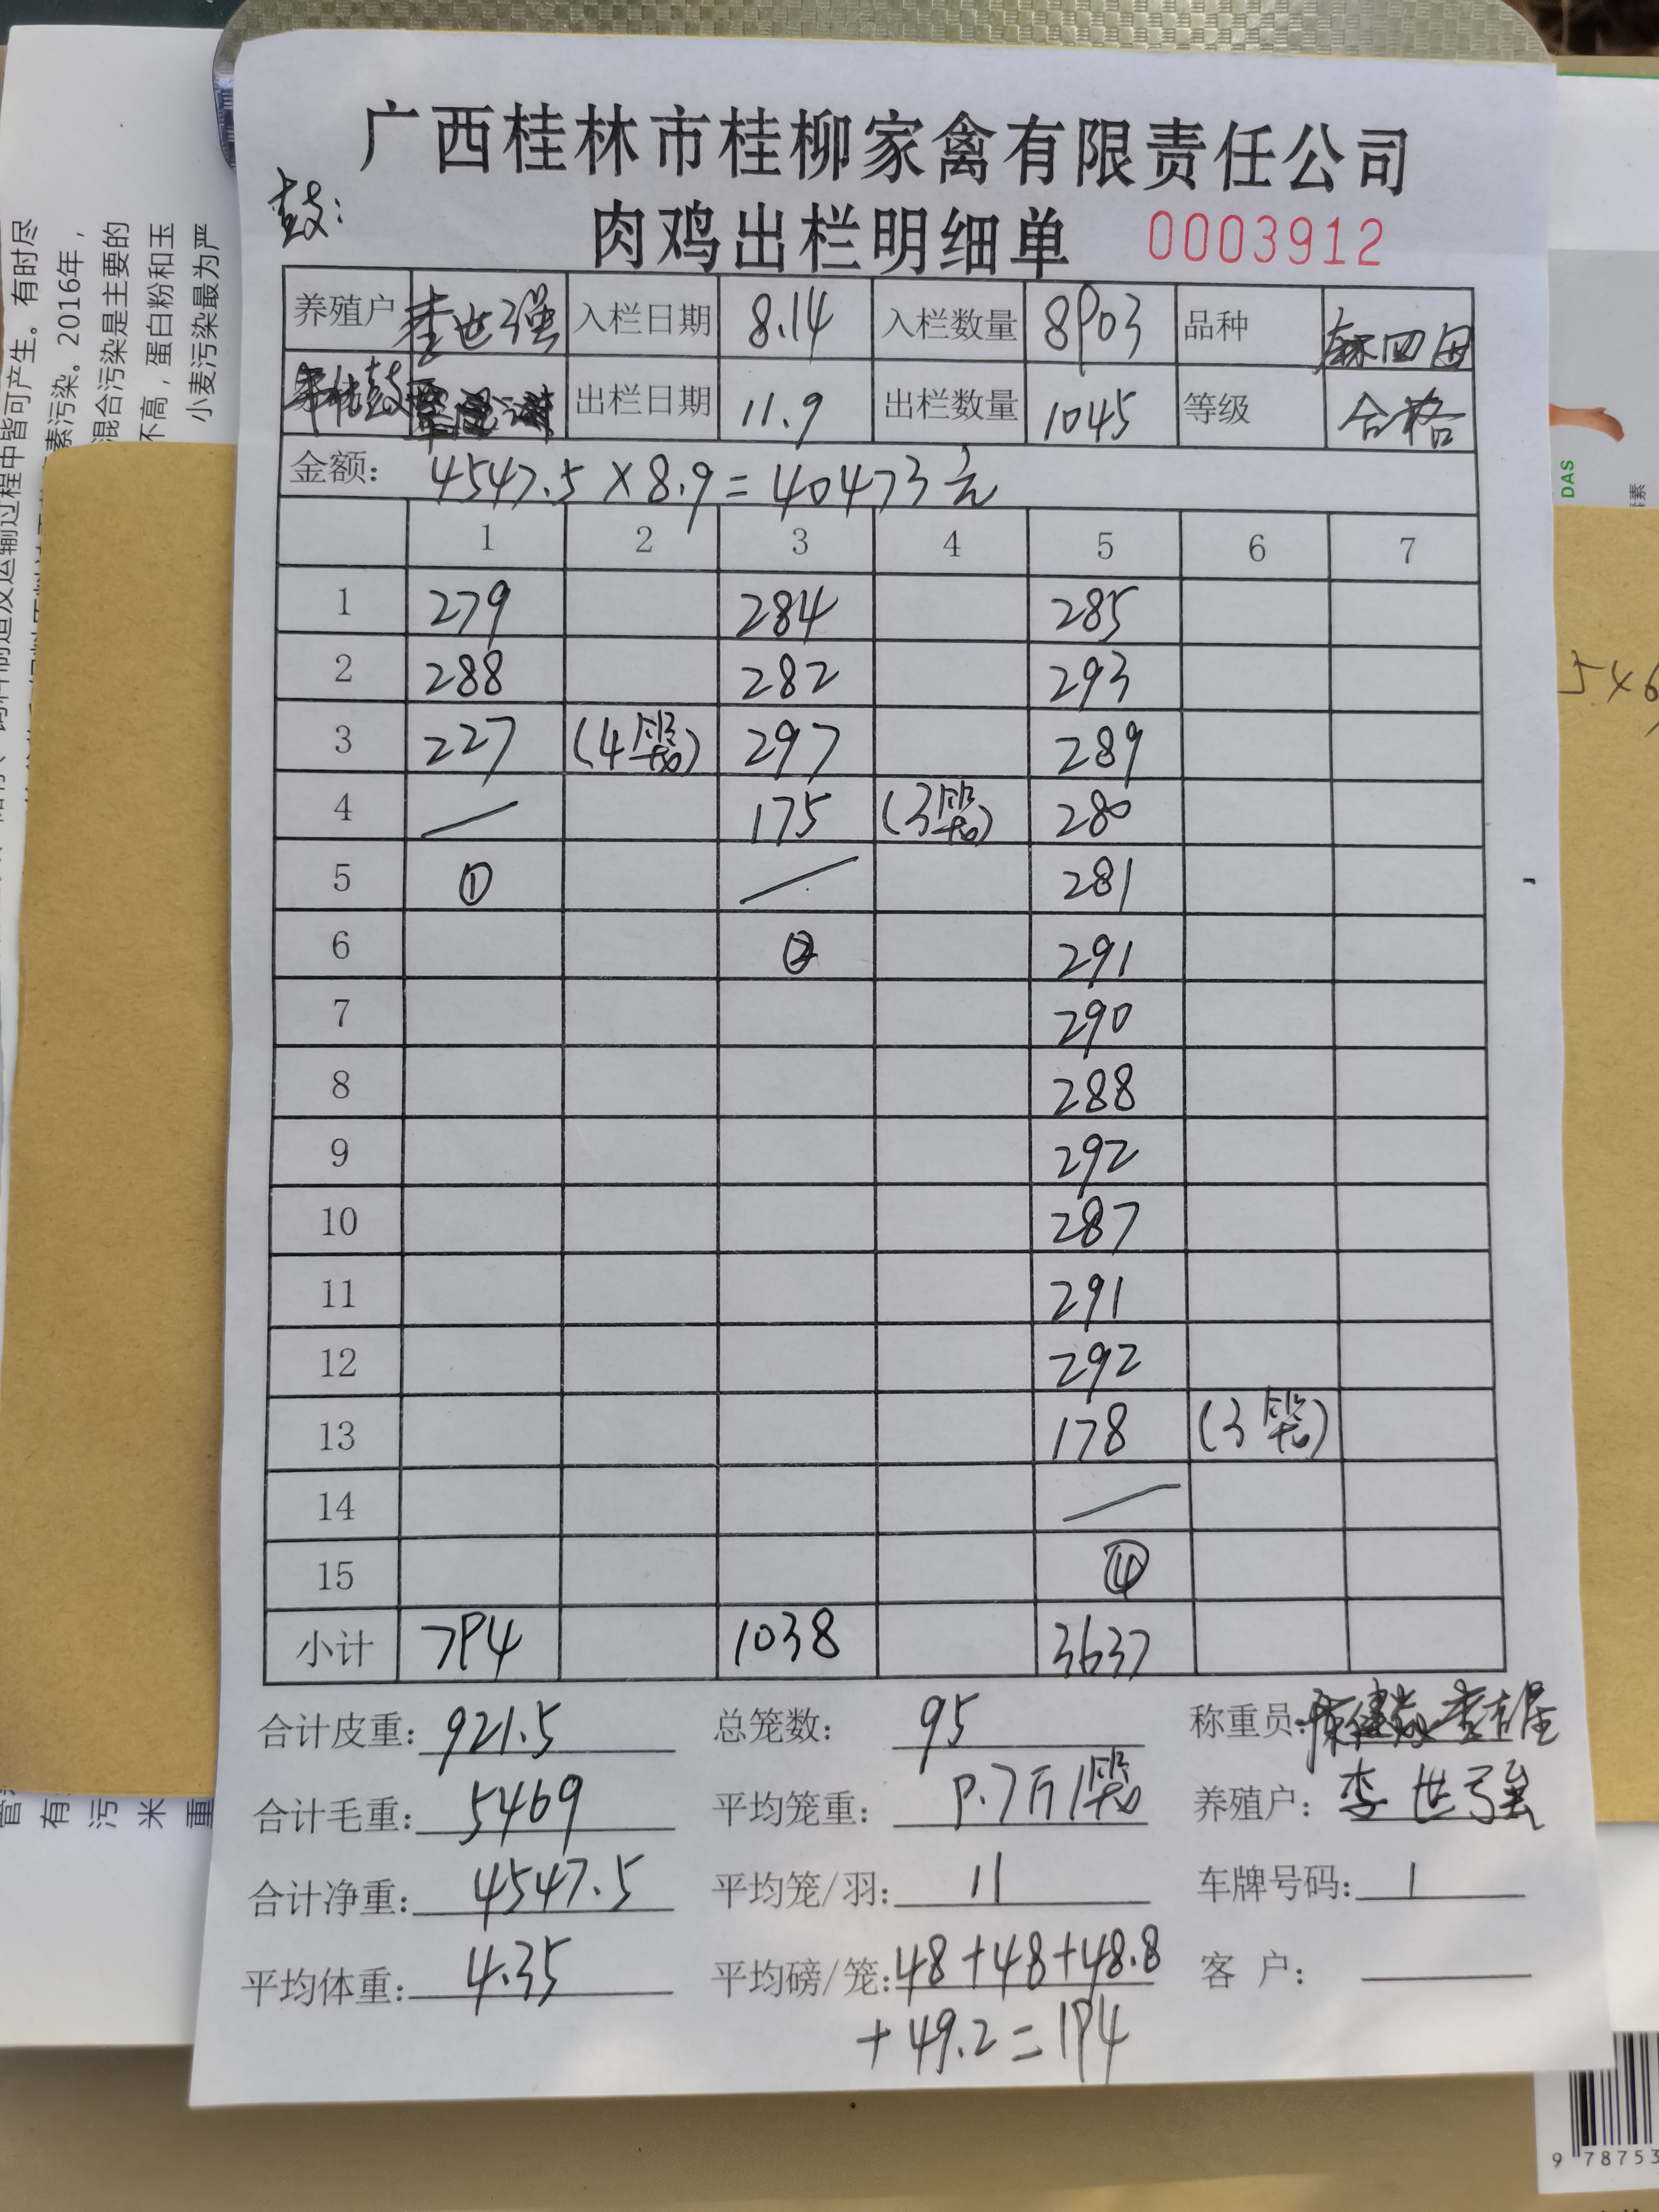 广西桂林市桂柳家禽有限责任公司
肉鸡出栏明细单 0003912
养殖户 李世强 入栏日期 8.14 入栏数量 8903 品种
出栏日期 11.9 出栏数量 1045 等级 合格
金额: 4547.5×8.9=40473元
1 2 3 4 5 6 7
1 279 284 285
2 288 282 293
3 227 (4笼) 297 289
4 / 175 (3笼) 280
5 ① / 281
6 ② 291
7 290
8 288
9 292
10 287
11 291
12 292
13 178 (3笼)
14 /
15 ④
小计 794 1038 3637
合计皮重: 921.5 总笼数: 95 称重员:
合计毛重: 5469 平均笼重: 9.7斤/笼 养殖户: 李世强
合计净重: 4547.5 平均笼/羽: 11 车牌号码: 1
平均体重: 4.35 平均磅/笼: 48+48+48.8 客户:
+49.2=194
有时尽
2016年，
混合污染是主要的
不高，蛋白粉和玉
小麦污染最为严
DAS
9 78753